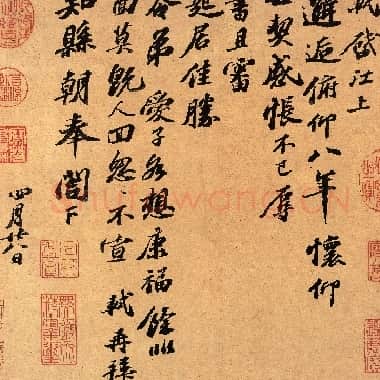 啓仕上
邂逅俯仰八年懷仰
世契感悵不已辱
書且審
起居佳勝
令弟愛子各想康福餘非
面莫既人回忽忽不宣 軾再拜
知縣朝奉閣下
四月廿八日